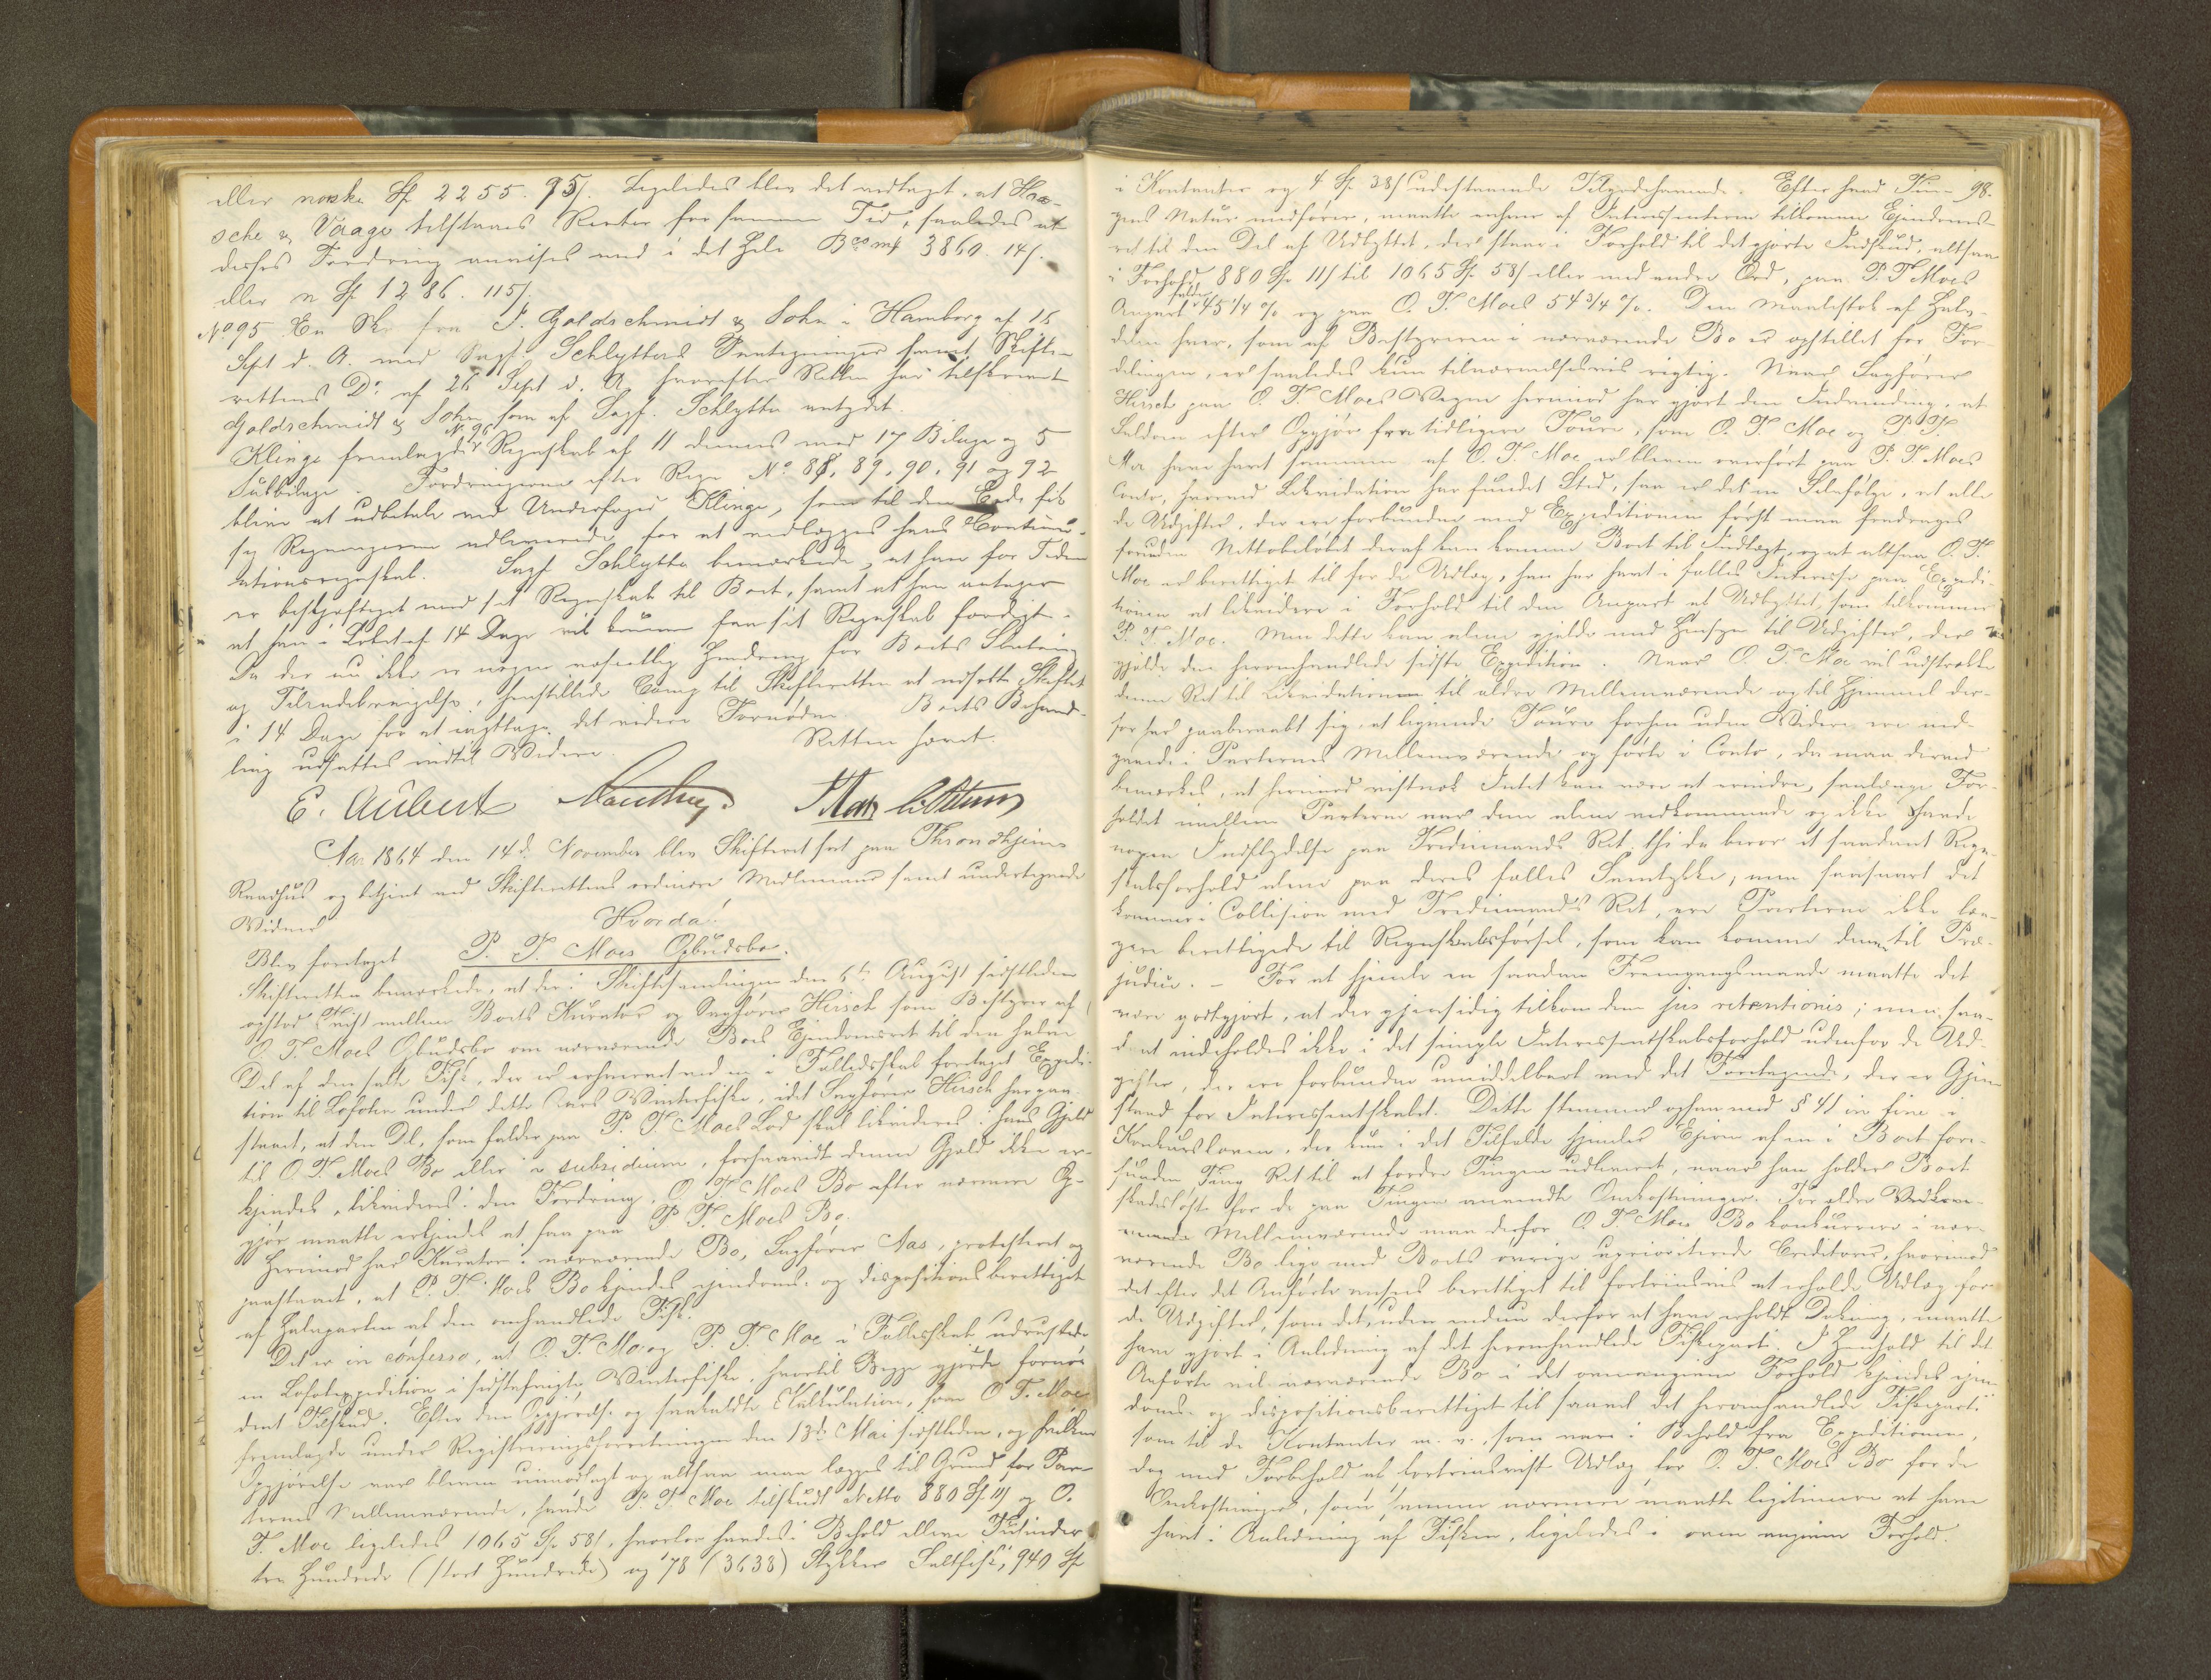 eller norske Sp 2255. 95/. Ligeledes blev det vedtaget, at Hoo-
sche & Vaage tilstaaes Renter for samme Tid, saaledes at
desses Fordring anvises med i det Hele Bco mk 3860. 14/.
eller n Sp 1286. 115/
No 95 En Skr fra P. Goldschmidt & Sohn i Hamborg af 16
Sept d. A. med Sagf. Schlytters Paategninger samt Skifte-
rettens Do af 26 Sept d. A, hvorefter Retten har tilskrevet
Goldschmidt & Sohn som af Sagf. Schlytter antydet
Klinge fremlagde No 96 Regnskab af 11 dennes med 17 Bilage og 5
Subbilage. Fordringerne efter Regn No 88, 89, 90, 91 og 92
bliver at udbetale ved Underfoged Klinge, som til den Ende fik
sig Regningerne udleverede for at vedlægges hans Continu-
ationsregnskab. Sagf Schlytter bemærkede, at han for Tiden
er beskjæftiget med sit Regnskab til Boet, samt at han antager
at han i Løbet af 14 Dage vil kunne faa sit Regnskab færdigt.
Da der nu ikke er nogen væsentlig Hindring for Boets Slutning
og Tilendebringelse, henstillede Comp til Skifteretten at udsætte Skiftet
i 14 Dage for at iagttage det videre Fornødne. Boets Behand-
ling udsattes indtil Videre.
Retten hævet.
E. Aubert
Aar 1864 den 14d November blev Skifteret sat paa Throndhjems
Raadhus og betjent ved Skifterettens ordinære Medlemmer samt undertegnede
Vidner
Hvorda!
Blev foretaget P. T. Moes Opbudsbo.
Skifteretten bemærkede, at der i Skiftesamlingen den 5te August sidstleden
opstod Tvist mellem Boets Kurator og Sagfører Hirsch som Bestyrer af
O. T. Moes Opbudsbo om nærværende Boes Ejendomsret til den halve
Del af den salte Fisk, der er erhvervet ved en i Fællesskab foretaget Expedi-
tion til Lofoten under dette Aars Vinterfiske, idet Sagfører Hirsch har paa-
staaet, at den Del, som falder paa P. T. Moes Lod skal likvideres i hans Gjeld
til O. T. Moes Bo eller in subsidium, forsaavidt denne Gjæld ikke er-
kjendes, likvideres i den Fordring, O. T. Moes Bo efter nærmere Op-
gjør maatte erkjendes at faa paa P. T. Moes Bo.
Herimod har Kurator i nærværende Bo, Sagfører Aas, protesteret og
paastaaet, at P. T. Moes Bo kjendes eiendoms- og dispositionsberettiget
af Halvparten af den omhandlede Fisk.
Det er in confesso, at O. T. Moe og P. T. Moe i Fællesskab udrustede
en Lofotexpedition i sidstafvigte Vinterfiske, hvortil Begge gjorde fornø-
dent Tilskud. Efter den Opgjørelse og saakaldte Calkulation, som O. T. Moe
fremlagde under Registreringsforretningen den 13de Mai sidstleden, og hvilken
Opgjørelse var bleven uimodsagt og altsaa maa lægges til Grund for Par-
ternes Mellemværende, havde P. T. Moe tilskudt Netto 880 Sp. 11/ og O.
T. Moe ligeledes 1065 Sp. 58/, hvorfor havdes i Behold elleve Tusinder
tre Hundrede (stort Hundrede) og 78 (3638) Stykker Saltfisk, 940 Sp
i Kontanter og 4 Sp. 38/ udestaaende Tilgodehavende. Efter hvad Tin- 98.
gens Natur medfører, maatte enhver af Interessenterne tilkomme Ejendoms-
ret til den Del af Udbyttet, der staar i Forhold til det gjorte Indskud, altsaa
i Forhold 880 Sp 11/ til 1065 Sp. 58/ eller med andre Ord, paa P. T Moes
Anpart falder 45 1/4 % og paa O. T. Moes 54 3/4 %. Den Maalestok af Halv-
delen hver, som af Bestyreren i nærværende Bo er opstillet for For-
delingen, er saaledes kun tilnærmelsesvis rigtig. Naar Sagfører
Hirsch paa O. T. Moes Vegne herimod har gjort den Indvending, at
Saldoen efter Opgjør fra tidligere Toure, som O. T. Moe og P. T.
Moe have havt sammen af O. T. Moe er bleven overført paa P. T. Moes
Conto, hvorved Likvidation har fundet Sted, saa er det en Selvfølge, at alle
de Udgifter, der ere forbundne med Expeditionen først maa fradrages
forinden Nettobeløbet deraf kan komme Boet til Indtægt, og at altsaa O. T.
Moe er berettiget til for de Udlæg, han har havt i fælles Interesse paa Expedi-
tionen at likvidere i Forhold til den Anpart af Udbyttet, som tilkommer
P. T. Moe. Men dette kan alene gjelde med Hensyn til Udgifter, der
gjelde den heromhandlede sidste Expedition. Naar O. T. Moe vil udstrække
denne Ret til Likvidationen til ældre Mellemværende og til Hjemmel der-
for har paaberaabt sig, at lignende Toure forhen uden Videre ere ind-
gaaede i Parternes Mellemværende og førte i Conto, da maa derved
bemærkes, at herimod vistnok Intet kan være at erindre, saalænge For-
holdet imellem Parterne var dem alene vedkommende og ikke havde
nogen Indflydelse paa Trediemands Ret, thi da beror et saadant Regn-
skabsforhold alene paa deres fælles Samtykke, men saasnart det
kommer i Collision med Trediemands Ret, ere Parterne ikke læn-
gere berettigede til Regnskabsførsel, som kan komme denne til Præ-
judice. - For at hjemle en saadan Fremgangsmaade maatte det
være godtgjort, at der gjensidig tilkom dem jus retentionis; men saa-
dant indeholdes ikke i det simple Interessentskabsforhold udenfor de Ud-
gifter, der ere forbundne umiddelbart med det Foretagende, der er Gjen-
stand for Interessentskabet. Dette stemmer ogsaa med § 41 in fine i
Konkursloven, der kun i det Tilfælde hjemler Ejeren af en i Boet fore-
funden Ting Ret til at fordre Tingen udleveret, naar han holder Boet
skadesløst for de paa Tingen anvendte Omkostninger. For ældre Vedkom-
mende Mellemværende maa derfor O. T. Moes Bo konkurrere i nær-
værende Bo lige med Boets øvrige uprioriterede Creditorer, hvorimod
det efter det Anførte ansees berettiget til fortrinsvis at erholde Udlæg for
de Udgifter, som det, uden endnu derfor at have erholdt Dækning, maatte
have gjort i Anledning af det heromhandlede Fiskeparti. I Henhold til det
Anførte vil nærværende Bo i det ovenangivne Forhold kjendes ejen-
doms- og dispositionsberettiget til saavel det heromhandlede Fiskeparti
som til de Kontanter m. v., som vare i Behold fra Expeditionen,
dog med Forbehold af fortrinsvist Udlæg for O. T. Moes Bo for de
Omkostninger, som samme nærmere maatte legitimere at have
havt i Anledning af Fisken, ligeledes i oven angivne Forhold.